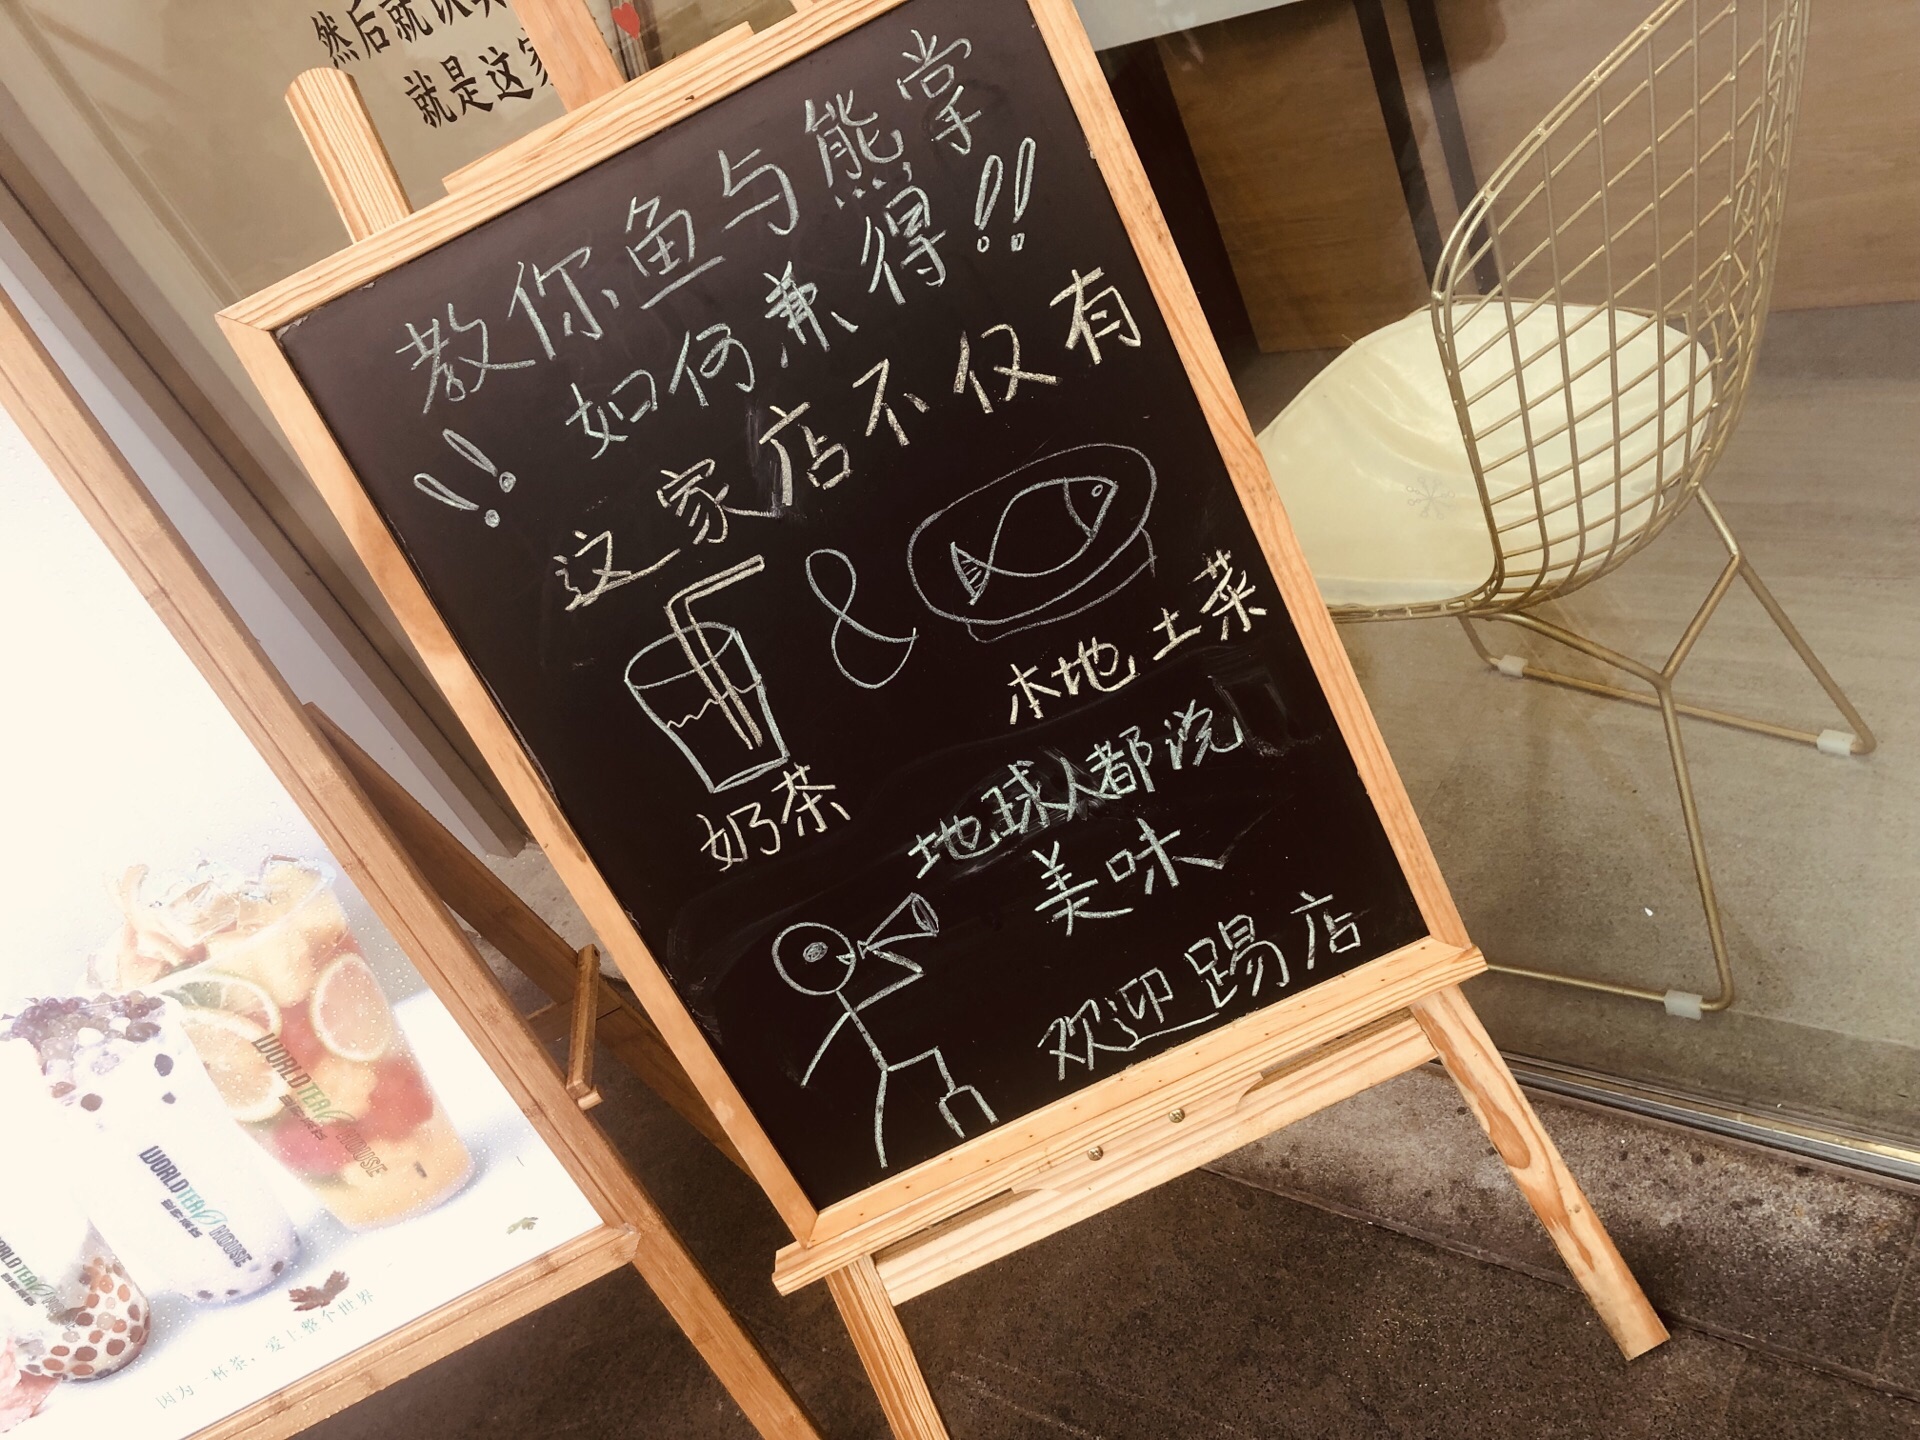 然后就认
就是这家
教你鱼与熊掌
如何兼得!!
!!
这家店不仅有
&
奶茶
本地土菜
地球人都说
美味
欢迎踢店
WORLD TEA HOUSE
WORLD TEA HOUSE
WORLD TEA
因为一杯茶，爱上整个世界